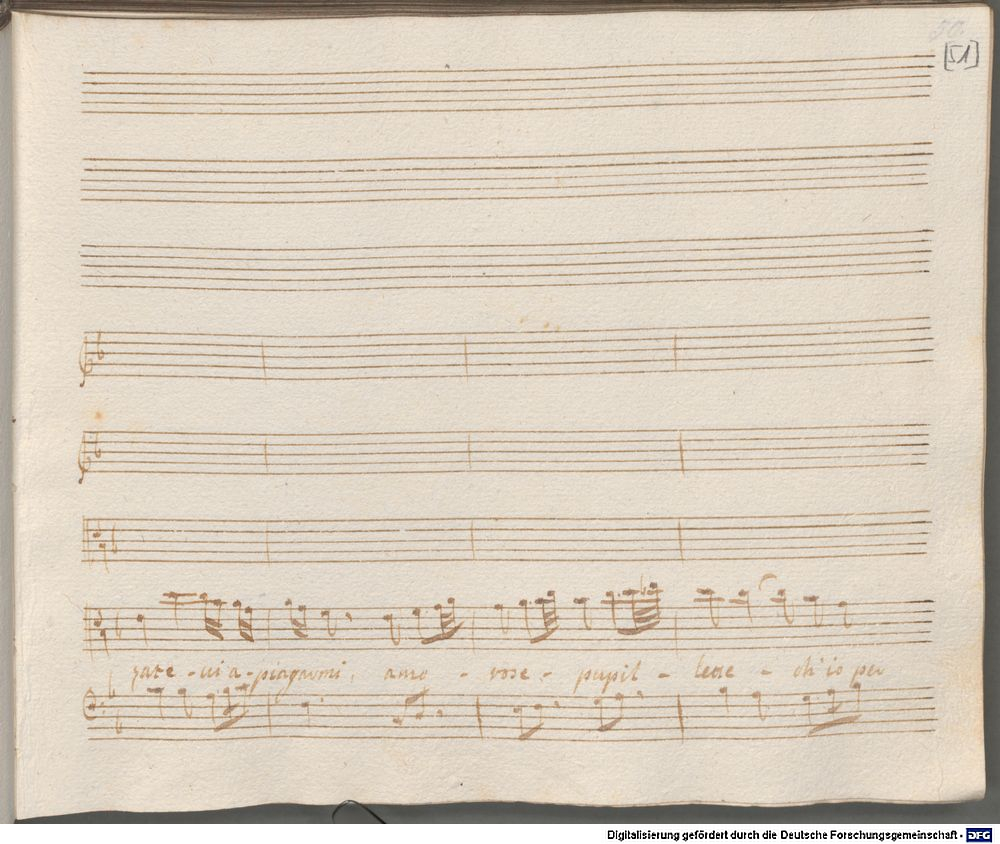 50.
[51]
zate - vi a - piagarmi, amo - rose - pupil - lette - ch'io per
Digitalisierung gefördert durch die Deutsche Forschungsgemeinschaft - DFG